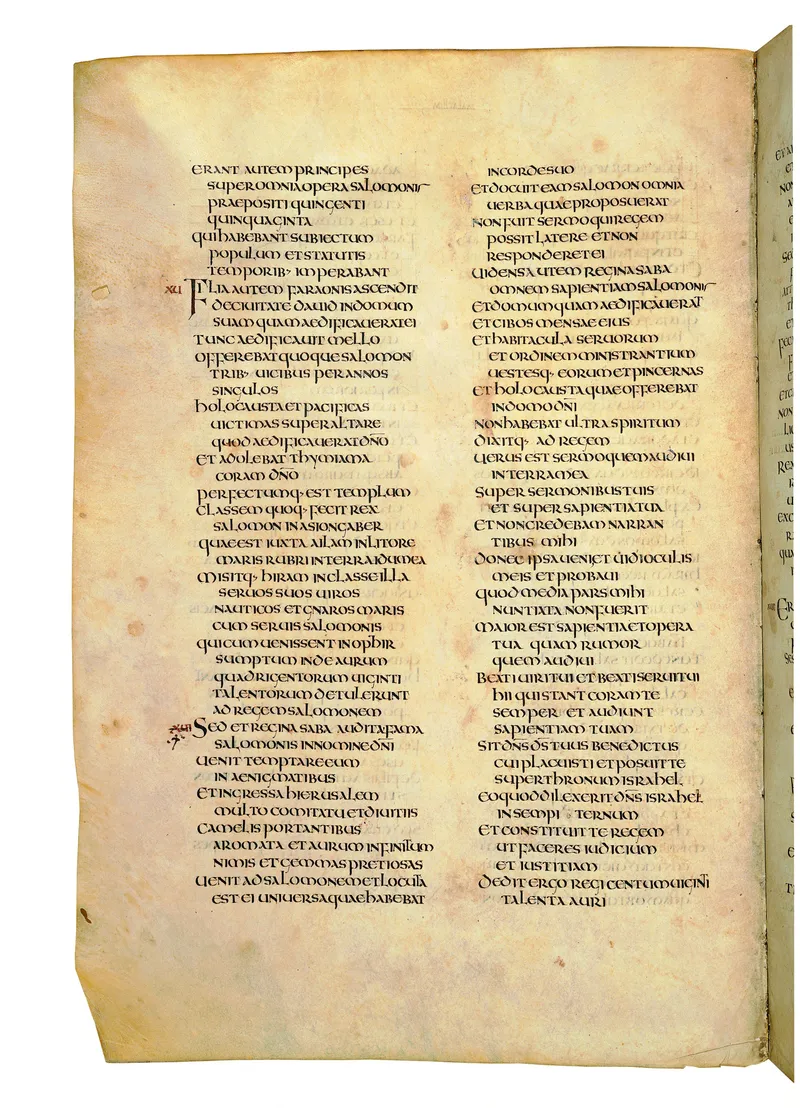 ERANT AUTEM PRINCIPES
SUPER OMNIA OPERA SALOMONIS
PRAEPOSITI QUINGENTI
QUINQUAGINTA
QUI HABEBANT SUBIECTUM
POPULUM ET STATUTIS
TEMPORIB· IMPERABANT
XII FILIA AUTEM FARAONIS ASCENDIT
DE CIUITATE DAUID IN DOMUM
SUAM QUAM AEDIFICAUERAT EI
TUNC AEDIFICAUIT MELLO
OFFEREBAT QUOQUE SALOMON
TRIB· UICIBUS PER ANNOS
SINGULOS
HOLOCAUSTA ET PACIFICAS
UICTIMAS SUPER ALTARE
QUOD AEDIFICAUERAT DÑO
ET ADOLEBAT THYMIAMA
CORAM DÑO
PERFECTUMQ· EST TEMPLUM
CLASSEM QUOQ· FECIT REX
SALOMON IN ASIONGABER
QUAE EST IUXTA AILAM IN LITORE
MARIS RUBRI IN TERRA IDUMEA
MISITQ· HIRAM IN CLASSE ILLA
SERUOS SUOS UIROS
NAUTICOS ET GNAROS MARIS
CUM SERUIS SALOMONIS
QUI CUM UENISSENT IN OPHIR
SUMPTUM INDE AURUM
QUADRIGENTORUM UIGINTI
TALENTORUM DETULERUNT
AD REGEM SALOMONEM
XIII SED ET REGINA SABA AUDITA FAMA
SALOMONIS IN NOMINE DÑI
UENIT TEMPTARE EUM
IN AENIGMATIBUS
ET INGRESSA HIERUSALEM
MULTO COMITATU ET DIUITIIS
CAMELIS PORTANTIBUS
AROMATA ET AURUM INFINITUM
NIMIS ET GEMMAS PRETIOSAS
UENIT AD SALOMONEM ET LOCUTA
EST EI UNIUERSA QUAE HABEBAT
IN CORDE SUO
ET DOCUIT EAM SALOMON OMNIA
UERBA QUAE PROPOSUERAT
NON FUIT SERMO QUI REGEM
POSSIT LATERE ET NON
RESPONDERET EI
UIDENS AUTEM REGINA SABA
OMNEM SAPIENTIAM SALOMONIS
ET DOMUM QUAM AEDIFICAUERAT
ET CIBOS MENSAE EIUS
ET HABITACULA SERUORUM
ET ORDINEM MINISTRANTIUM
UESTESQ· EORUM ET PINCERNAS
ET HOLOCAUSTA QUAE OFFEREBAT
IN DOMO DÑI
NON HABEBAT ULTRA SPIRITUM
DIXITQ· AD REGEM
UERUS EST SERMO QUEM AUDIUI
IN TERRA MEA
SUPER SERMONIBUS TUIS
ET SUPER SAPIENTIA TUA
ET NON CREDEBAM NARRAN
TIBUS MIHI
DONEC IPSA UENI ET UIDI OCULIS
MEIS ET PROBAUI
QUOD MEDIA PARS MIHI
NUNTIATA NON FUERIT
MAIOR EST SAPIENTIA ET OPERA
TUA QUAM RUMOR
QUEM AUDIUI
BEATI UIRI TUI ET BEATI SERUI TUI
HII QUI STANT CORAM TE
SEMPER ET AUDIUNT
SAPIENTIAM TUAM
SIT DÑS DS TUUS BENEDICTUS
CUI PLACUISTI ET POSUIT TE
SUPER THRONUM ISRAHEL
EO QUOD DILEXERIT DÑS ISRAHEL
IN SEMPITERNUM
ET CONSTITUIT TE REGEM
UT FACERES IUDICIUM
ET IUSTITIAM
DEDIT ERGO REGI CENTUM UIGINTI
TALENTA AURI